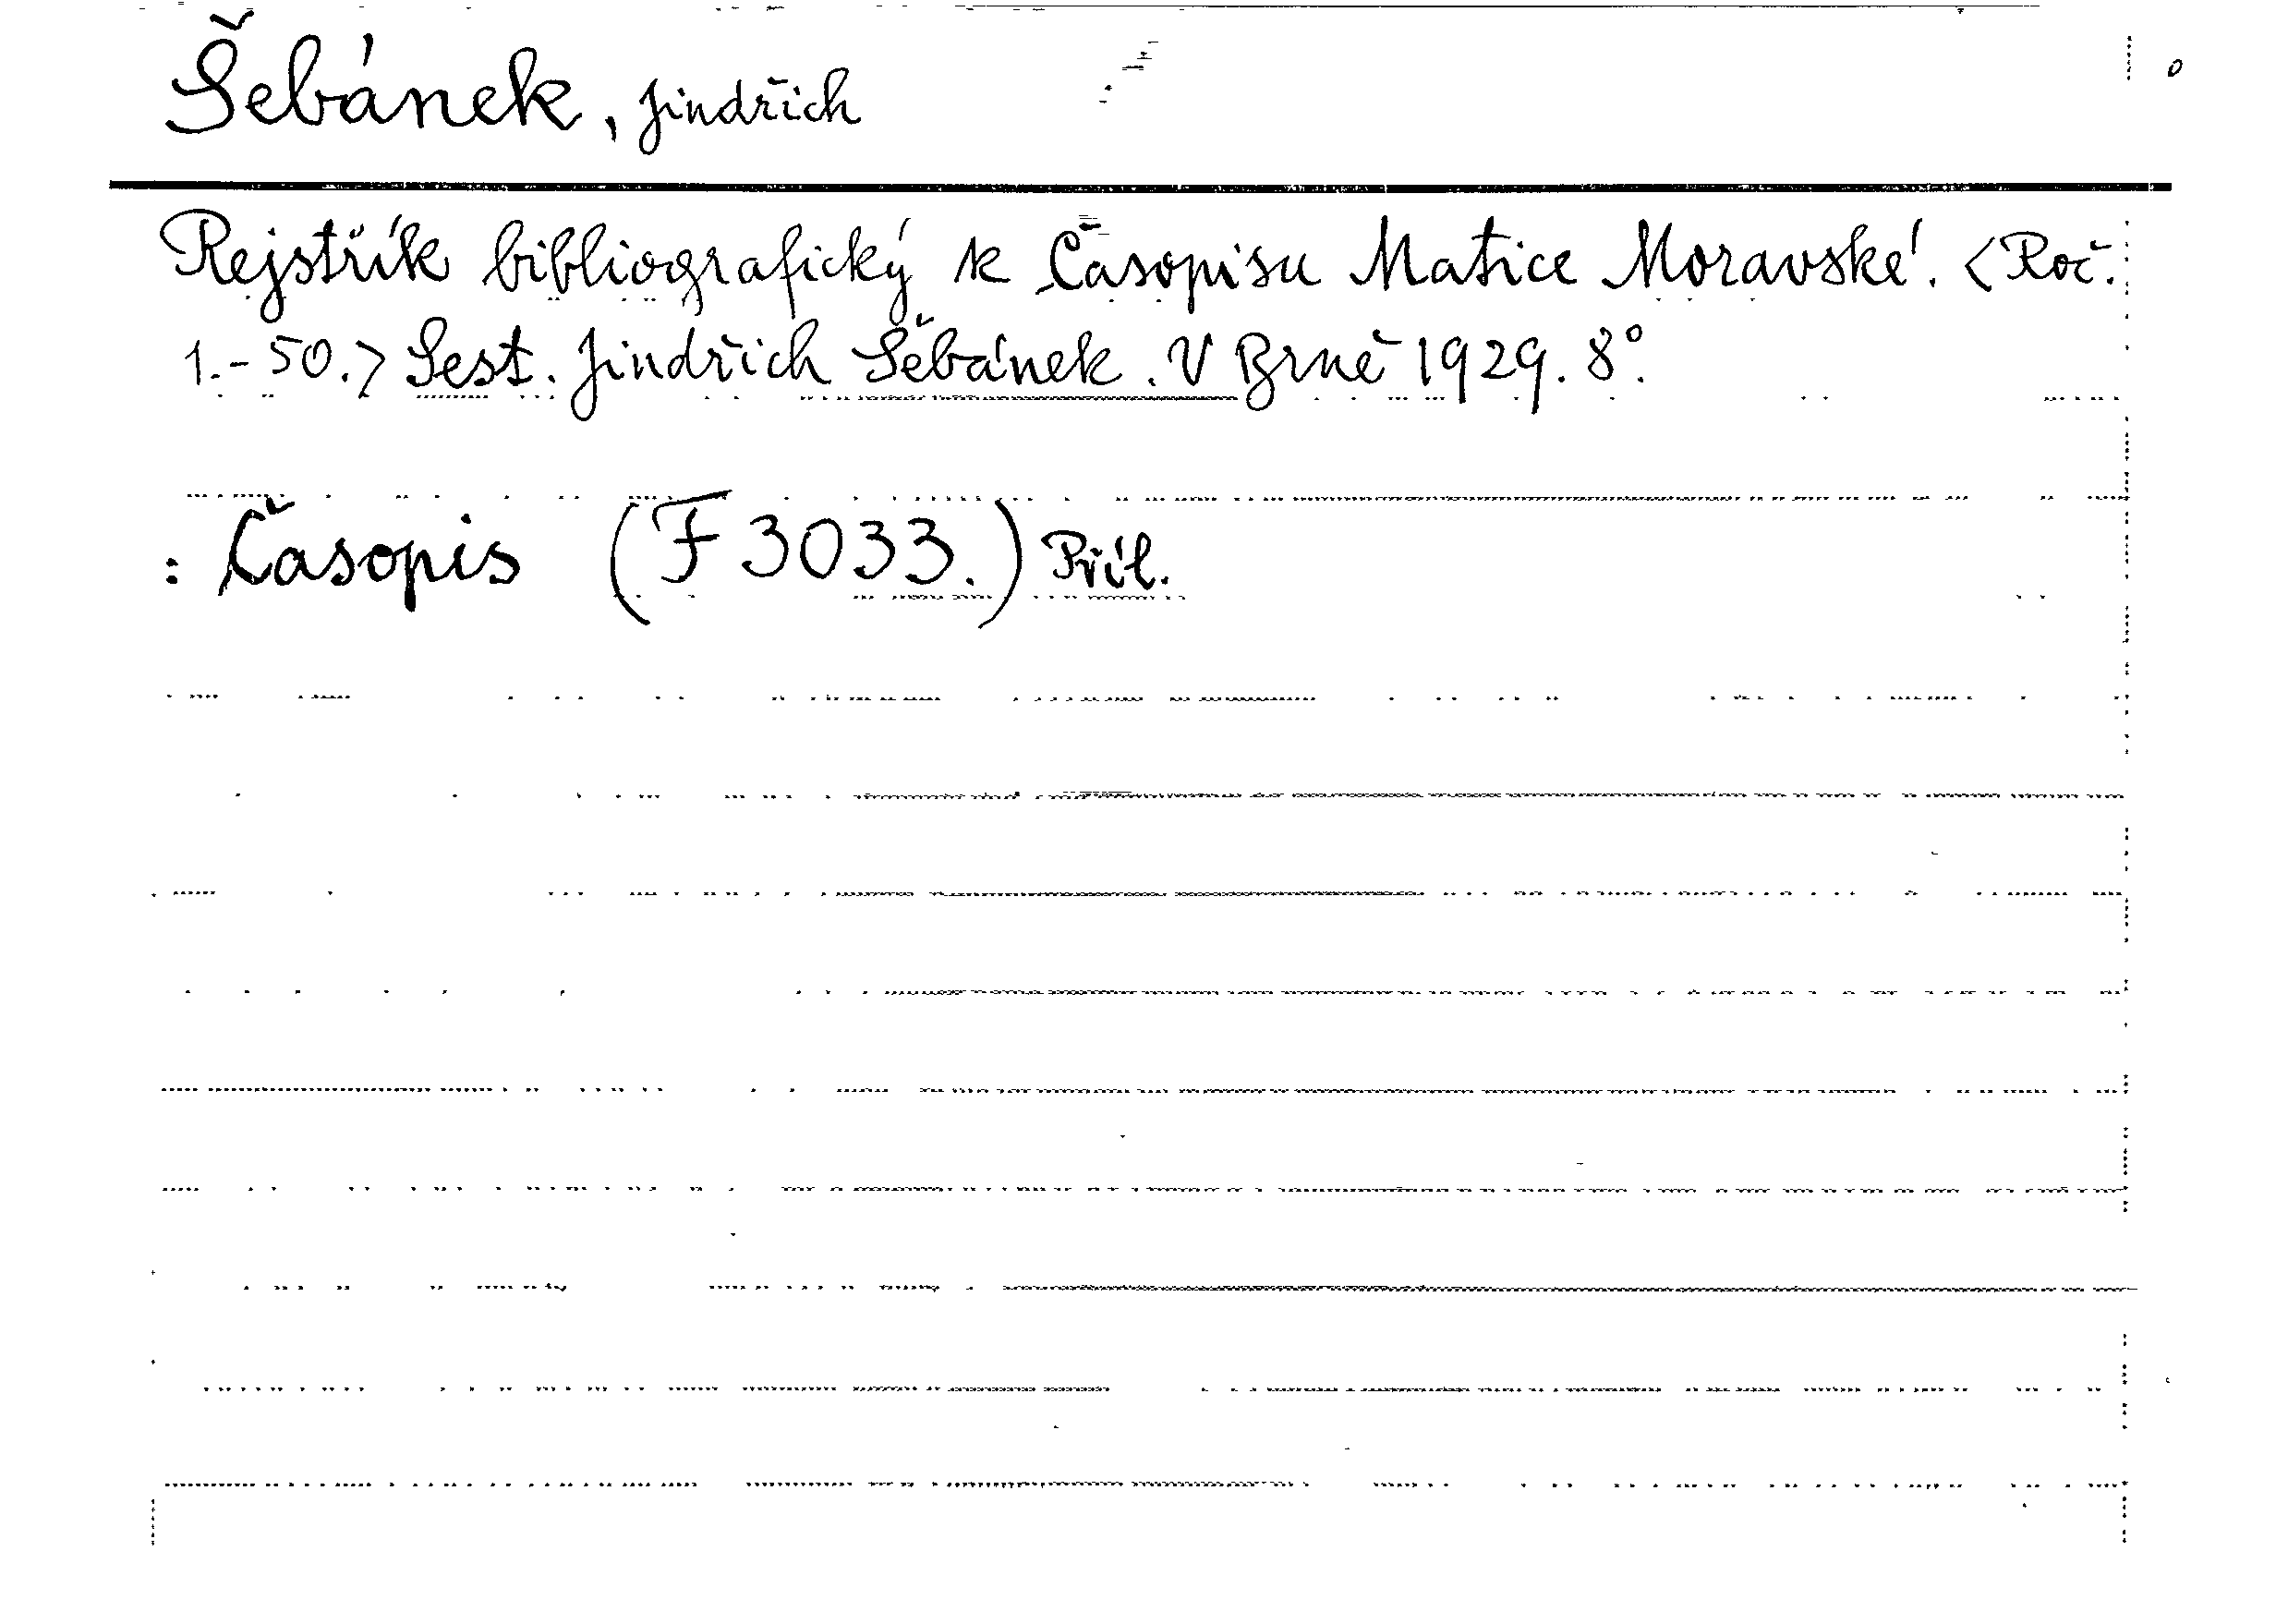 Šebánek, Jindřich
Rejstřík bibliografický k Časopisu Matice Moravské. <Roč.
1.-50.> Sest. Jindřich Šebánek. V Brně 1929. 8°.
: Časopis (F 3033.) Příl.